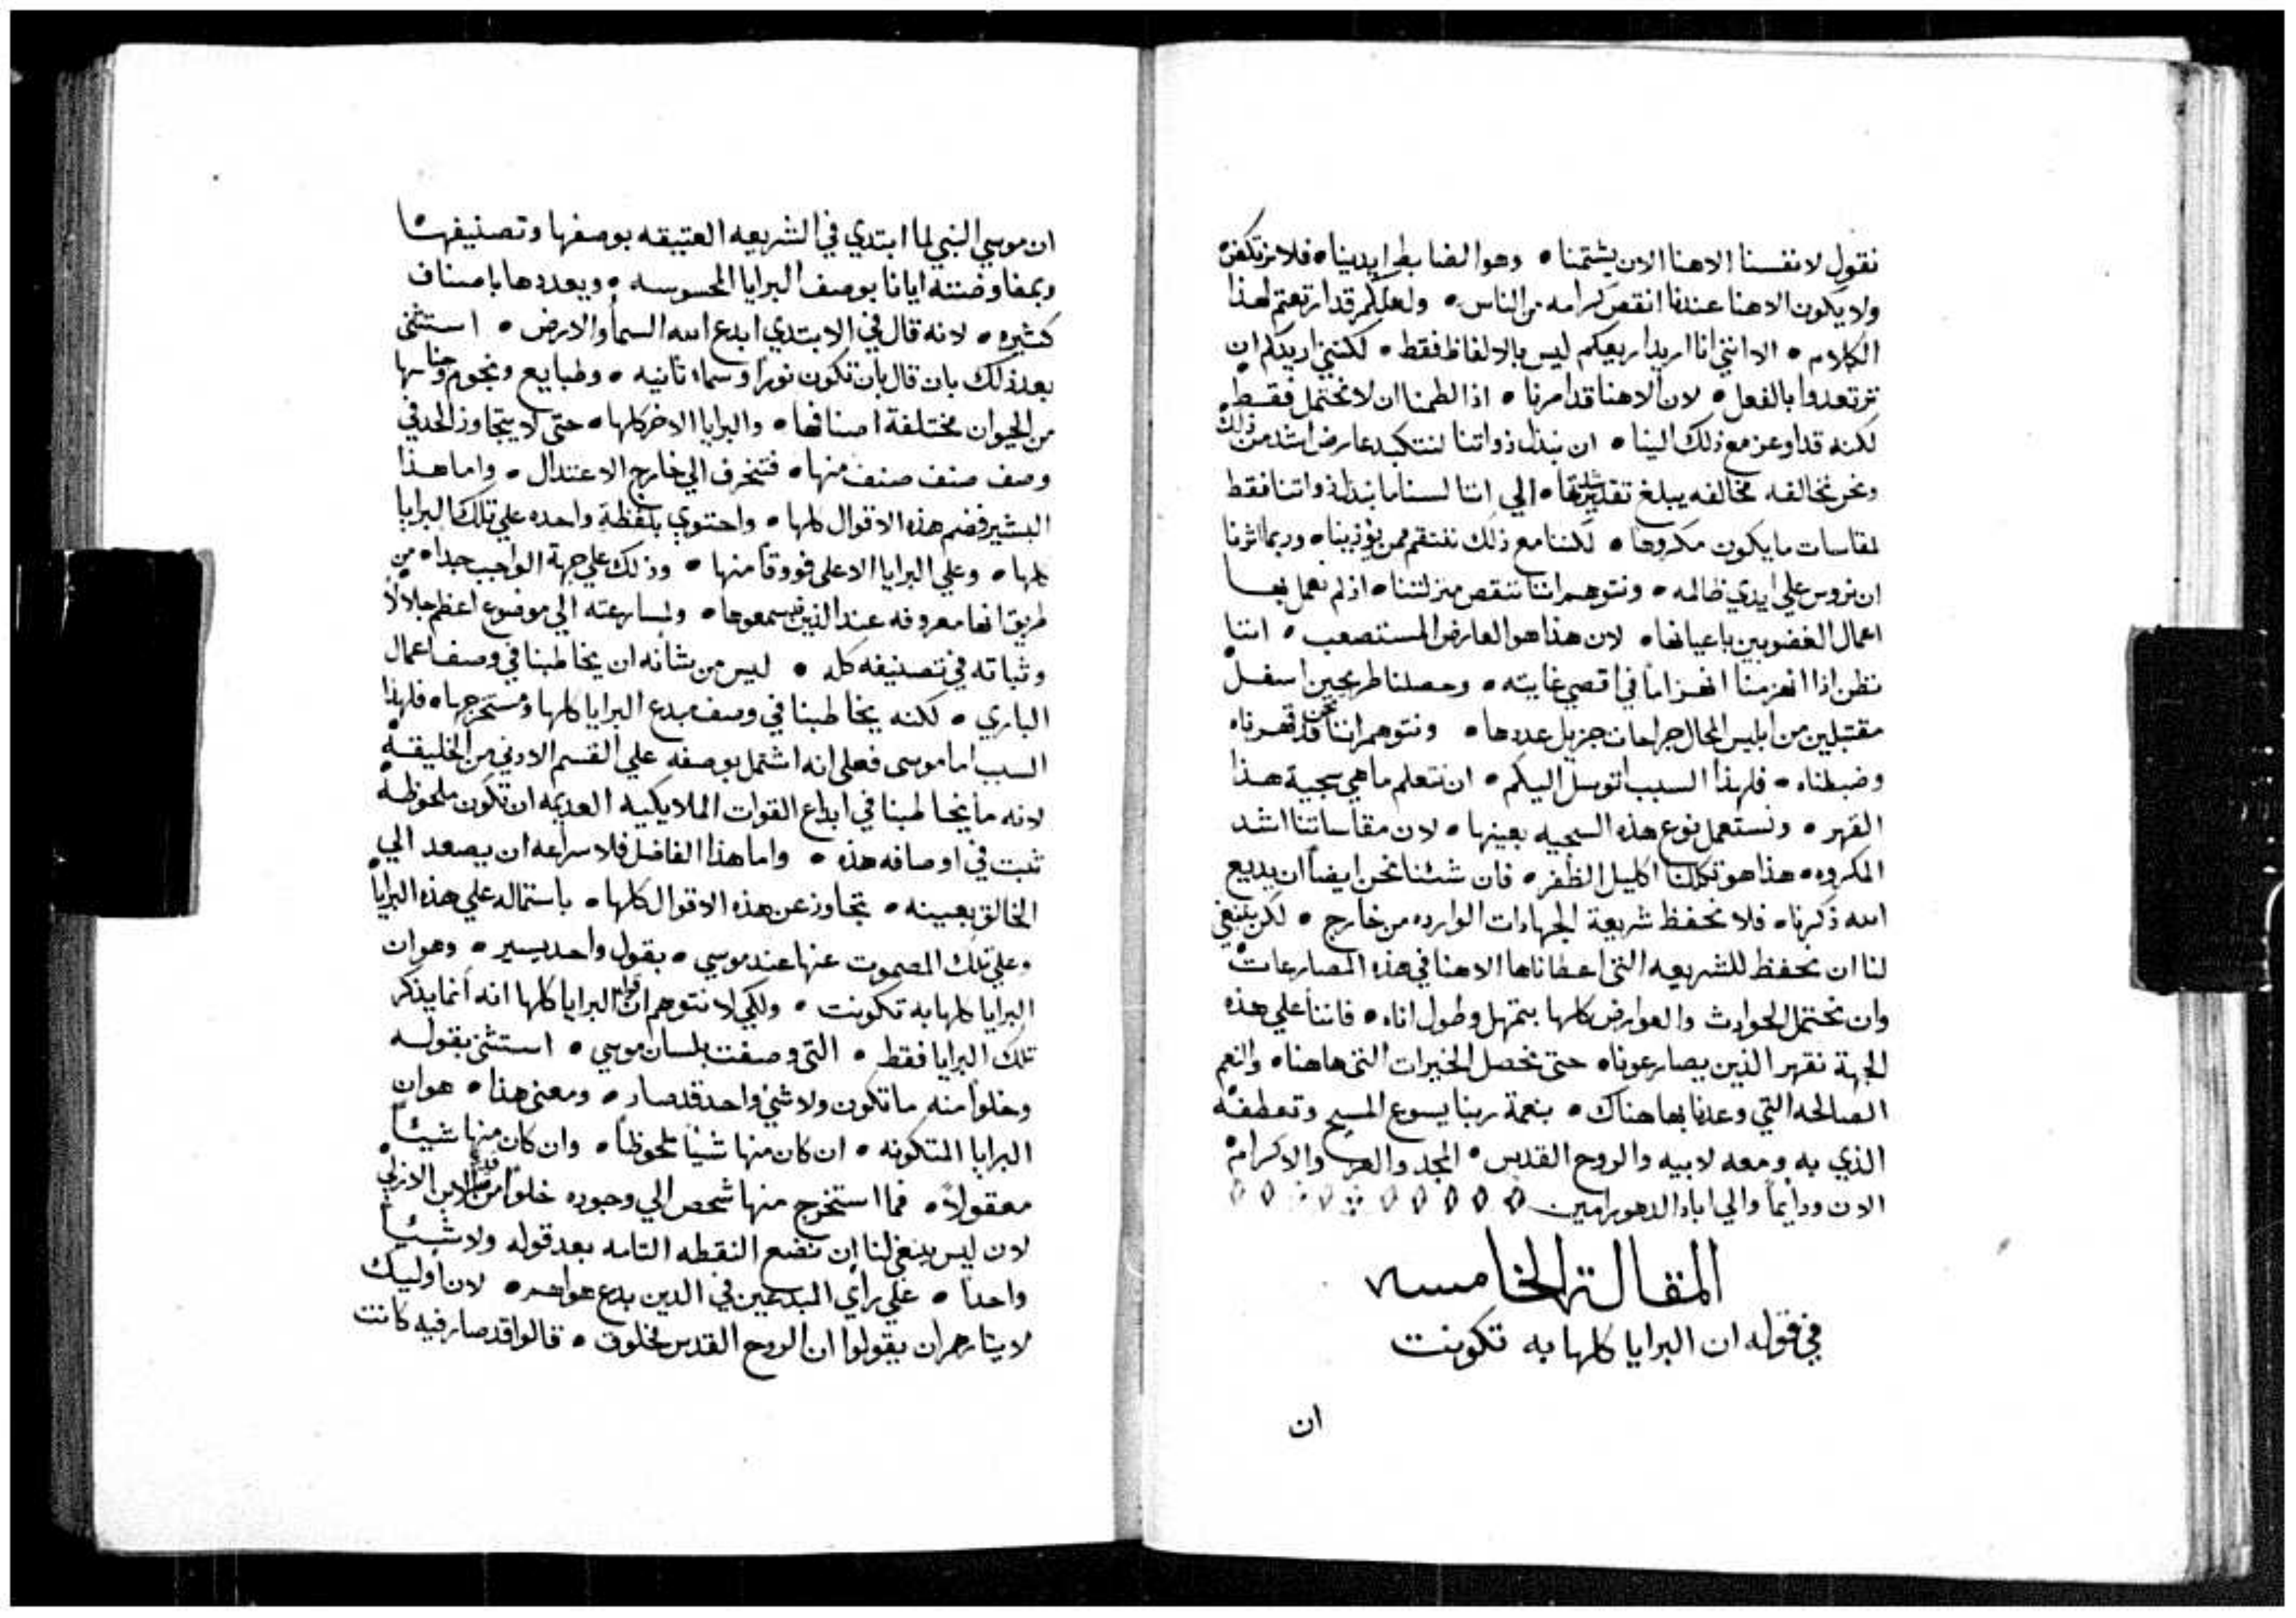 نقول لانفسنا الاهنا الان يشتمنا • وهو الضابط ايدينا • فلا نرتكض
ولا يكون الاهنا عندنا انقص كرامه من الناس • ولعلكم قد ارتعتم لهذا
الكلام • الا انني انا اريد اريعكم ليس بالالفاظ فقط • لكنني اريدكم ان
ترتعدوا بالفعل • لان الاهنا قد امرنا • اذا لطمنا ان لا نحتمل فقط •
لكنه قد اوعز مع ذلك الينا • ان نبذل ذواتنا لنتكبد عارض اشد من ذلك
ونحن نخالفه مخالفه يبلغ تقديرها • الي اننا لسنا ما نبذل ذواتنا فقط
لمقاسات ما يكون مكروها • لكننا مع ذلك ننتقم ممن يؤذينا • وربما اثرنا
ان نروس علي ايدي ظالمه • ونتوهم اننا تنقص منزلتنا • اذ لم نعمل بها
اعمال الغضوبين باعيانها • لان هذا هو العارض المستصعب • اننا
نظن اذا انهزمنا انهزاماً في اقصي غايته • وحصلنا طريحين اسفل
مقتبلين من ابليس المحال جراحات جزيل عددها • ونتوهم اننا نحن قد قهرناه
وضبطناه • فلهذا السبب اتوسل اليكم • ان نتعلم ما هي سجية هذا
القهر • ونستعمل نوع هذه السجيه بعينها • لان مقاساتنا اشد
المكروه • هذا هو تكللنا اكليل الظفر • فان شئنا نحن ايضاً ان يديع
الله ذكرنا • فلا نحفظ شريعة الجهادات الوارده من خارج • لكن ينبغي
لنا ان نحفظ للشريعه التي اعطاناها الاهنا في هذه المصارعات
وان نحتمل الحوادث والعوارض كلها بتمهل وطول اناه • فاننا علي هذه
الجهة نقهر الذين يصارعونا • حتى نحصل الخيرات التي هاهنا • والنعم
الصالحه التي وعدنا بها هناك • بنعمة ربنا يسوع المسيح وتعطفه
الذي به ومعه لابيه والروح القدس • المجد والعز والاكرام
الان ودايماً والي اباد الدهور امين
المقالة الخامسه
في قوله ان البرايا كلها به تكونت
ان
ان موسي النبي لما ابتدي في الشريعه العتيقه بوصفها وتصنيفها
وبمفاوضته ايانا بوصف البرايا المحسوسه • ويعددها باصناف
كثيره • لانه قال في الابتدي ابدع الله السما والارض • استثنى
بعد ذلك بان قال بان تكون نوراً وسماء ثانيه • وطبايع ونجوم
من الحيوان مختلفة اصنافها • والبرايا الاخر كلها • حتى لا يتجاوز الحد في
وصف صنف صنف منها • فتنحرف الي خارج الاعتدال • واما هذا
البشير فضم هذه الاقوال كلها • واحتوي بلفظة واحده علي تلك البرايا
كلها • وعلي البرايا الاعلى فووقاً منها • وذلك علي جهة الواجب جدا • من
طريق انها معروفه عند الذين يسمعوها • ولمسارعته الي موضوع اعظم جلالاً
وثباته في تصنيفه كله • ليس من شانه ان يخاطبنا في وصف اعمال
الباري • لكنه يخاطبنا في وصف مبدع البرايا كلها ومستخرجها • فلهذا
السبب اما موسى فعلى انه اشتمل بوصفه علي القسم الادوني من الخليقه
لانه ما يخاطبنا في ابداع القوات الملايكيه العديمه ان تكون ملحوظه
ثبت في اوصافه هذه • واما هذا الفاضل فلاسراعه ان يصعد الي
الخالق بعينه • تجاوز عن هذه الاقوال كلها • باستماله علي هذه البرايا
وعلي تلك المصموت عنها عند موسي • بقول واحد يسير • وهو ان
البرايا كلها به تكونت • ولكي لا نتوهم ان قوله البرايا كلها انه انما يذكر
تلك البرايا فقط • التي وصفت بلسان موسي • استثنى بقوله
وخلواً منه ما تكون ولا شي واحد قد صار • ومعنى هذا • هو ان
البرايا المتكونه • ان كان منها شيئاً ملحوظاً • وان كان منها شيئاً
معقولاً • فما استخرج منها شخص الي وجوده خلواً من قدرة الابن الازلي
لان ليس ينبغي لنا ان نضع النقطه التامه بعد قوله ولا شيئاً
واحداً • علي راي المبدعين في الدين بدع هواهم • لان اوليك
لايثارهم ان يقولوا ان الروح القدس مخلوق • قالوا قد صار فيه كانت